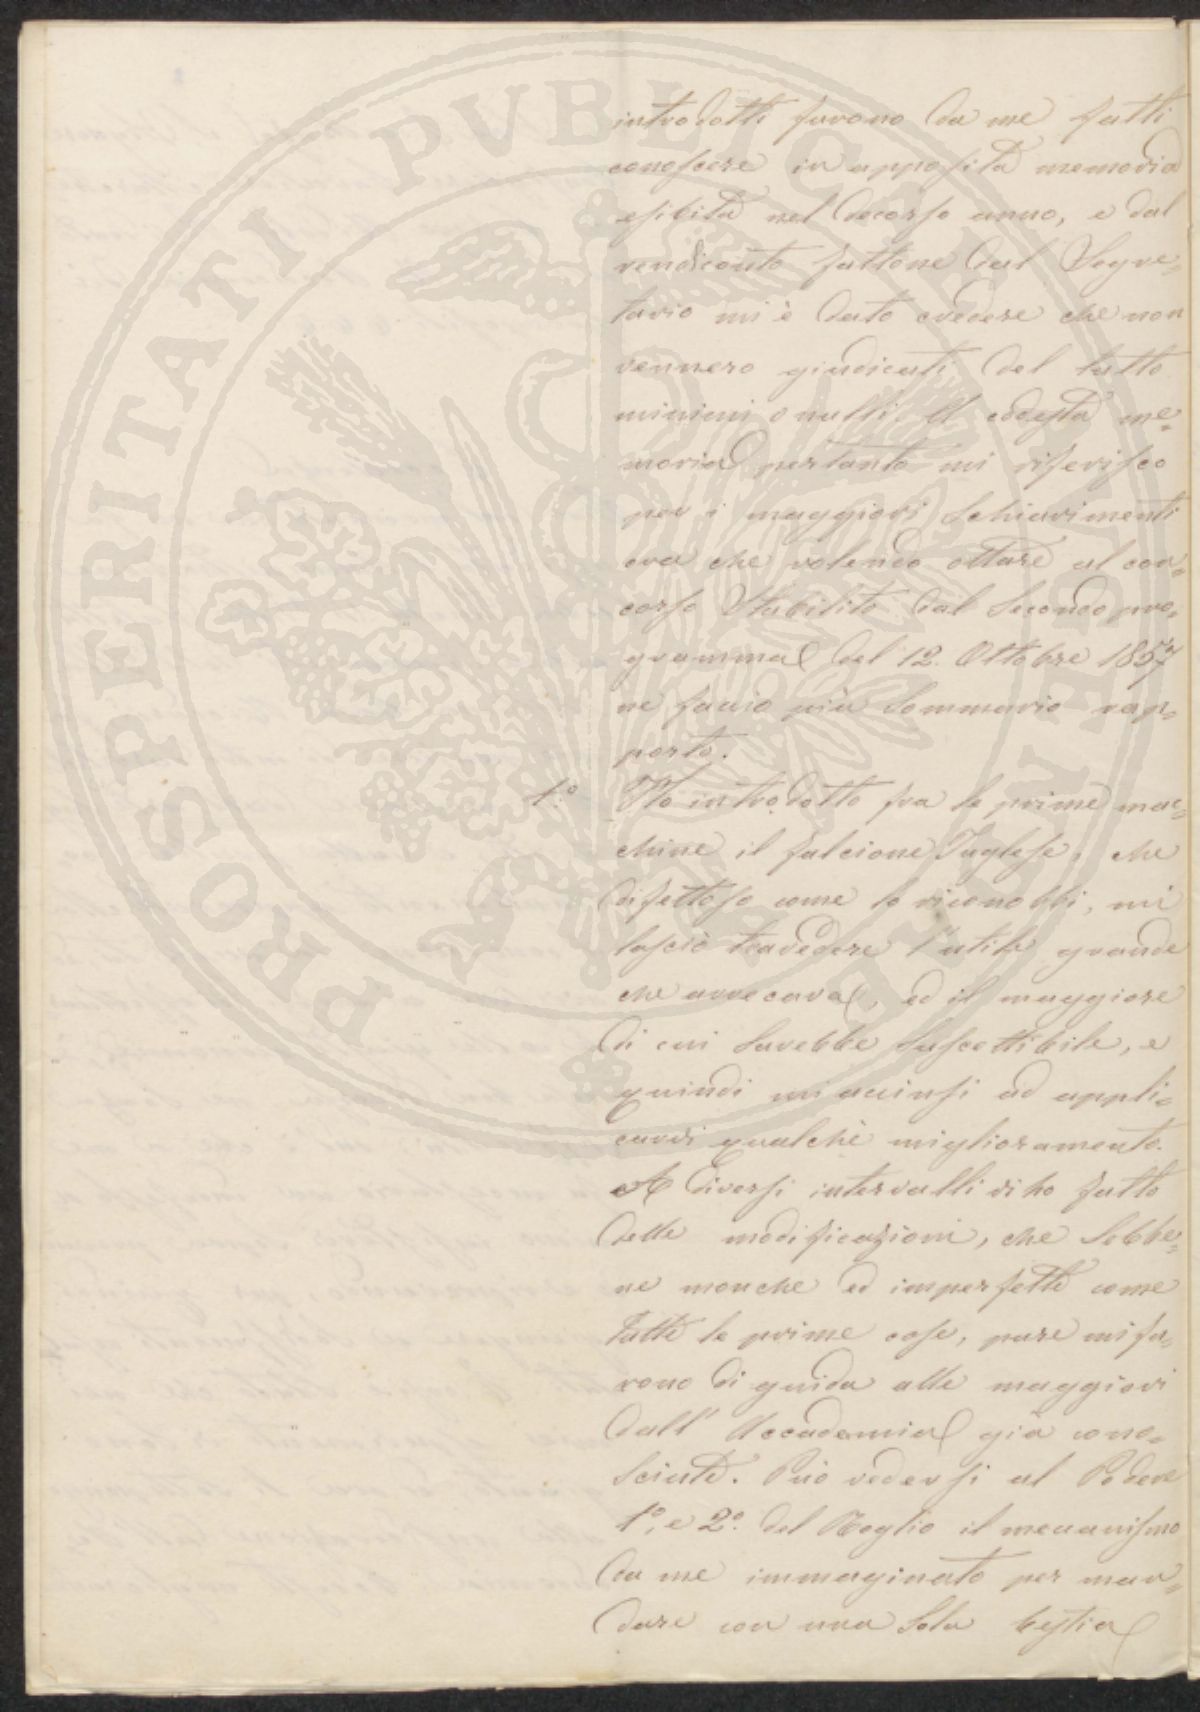 PROSPERITATI PVBLICAE AVGENDAE
introdotti furono da me fatti
conoscere in apposita memoria
esibita nel decorso anno, e dal
rendiconto fattone dal Segre=
tario mi è dato credere che non
vennero giudicati del tutto
minimi o nulli. A codesta me=
moria pertanto mi riferisco
per i maggiori schiarimenti
ora che volendo ottare al con=
corso stabilito dal secondo pro=
gramma del 12. Ottobre 1857
ne faccio più sommario rap=
porto.
1.° Ho introdotto fra le prime mac=
chine il falcione Inglese, che
difettoso come lo riconobbi, mi
lasciò travedere l'utile grande
che arrecava, ed il maggiore
di cui sarebbe suscettibile, e
quindi mi accinsi ad appli=
carvi qualche miglioramento.
A diversi intervalli vi ho fatto
delle modificazioni, che sebbe=
ne monche ed imperfette come
tutte le prime cose, pure mi fu=
rono di guida alle maggiori
dall'Accademia già cono=
sciute. Può vedersi al Podere
1°, e 2°. del Meglio il mecanismo
da me immaginato per man=
dare con una sola bestia